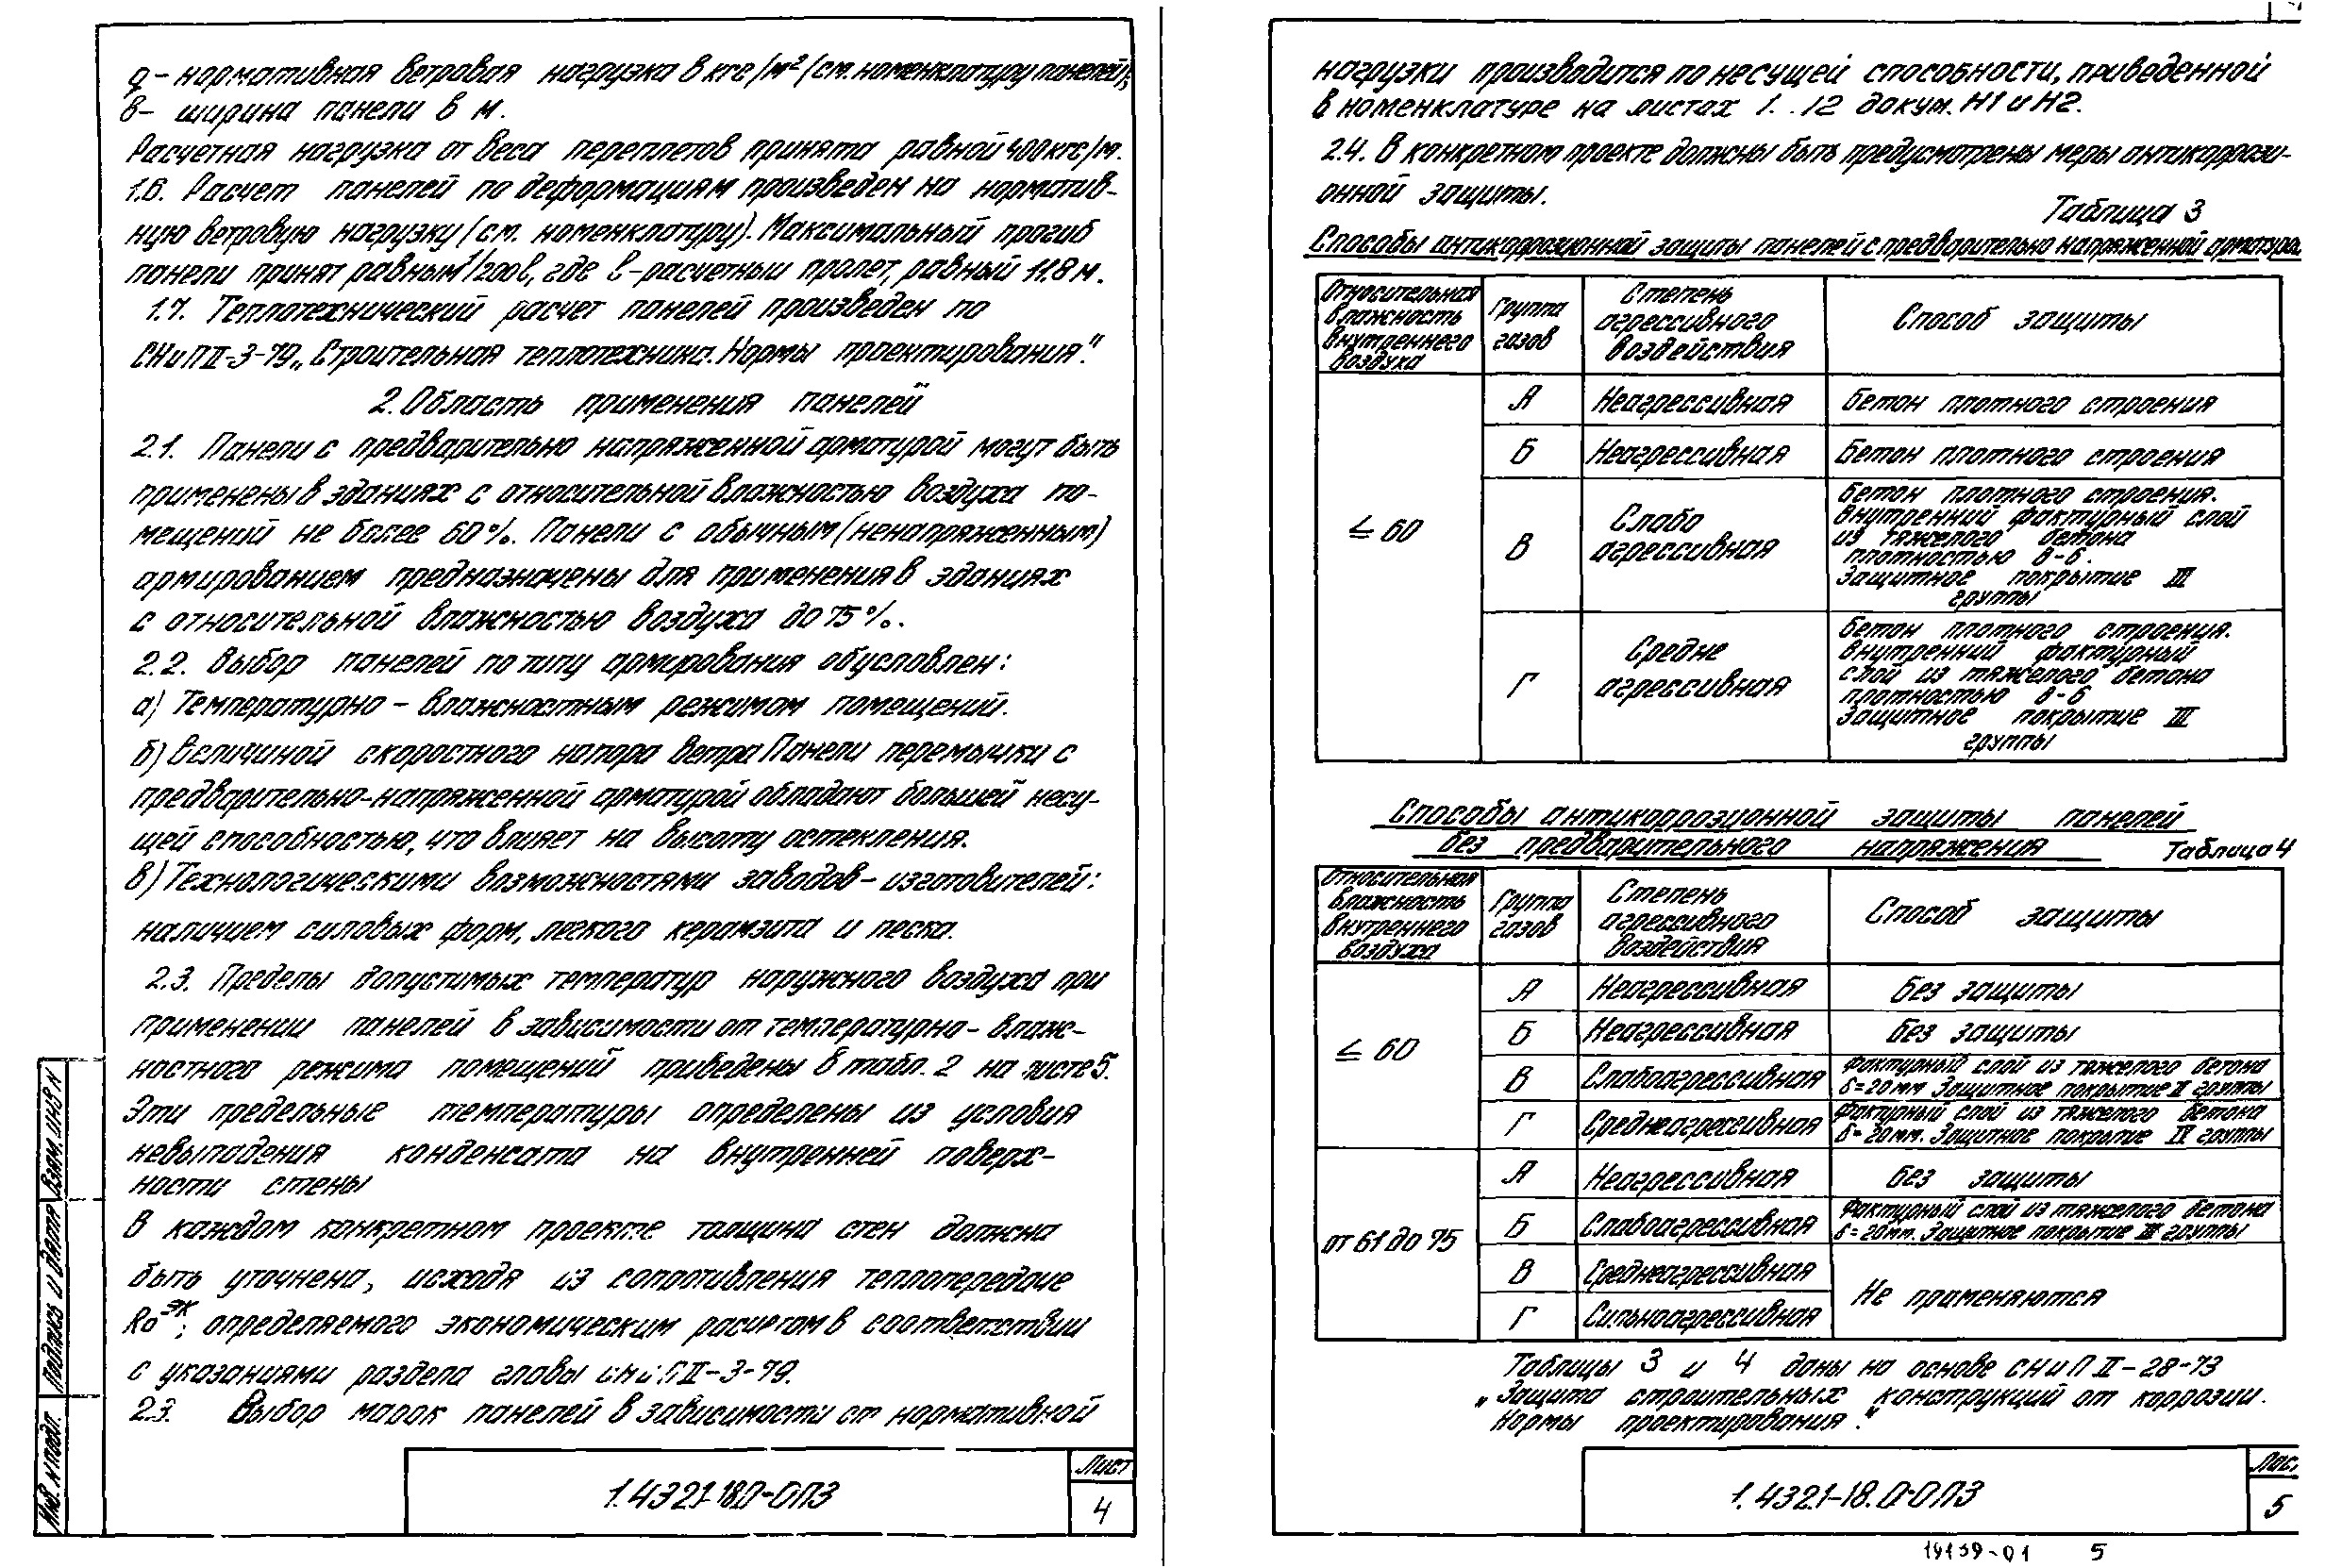 q – нормативная ветровая нагрузка в кгс/м² (см. номенклатуру панелей);
в – ширина панели в м.
Расчетная нагрузка от веса переплетов принята равной 400 кгс/м.
1.6. Расчет панелей по деформациям произведен на норматив-
ную ветровую нагрузку (см. номенклатуру). Максимальный прогиб
панели принят равным 1/200 ℓ, где ℓ – расчетный пролет, равный 11.8 м.
1.7. Теплотехнический расчет панелей произведен по
СНиП II-3-79 „Строительная теплотехника. Нормы проектирования."
2. Область применения панелей
2.1. Панели с предварительно напряженной арматурой могут быть
применены в зданиях с относительной влажностью воздуха по-
мещений не более 60%. Панели с обычным (ненапряженным)
армированием предназначены для применения в зданиях
с относительной влажностью воздуха до 75%.
2.2. Выбор панелей по типу армирования обусловлен:
а) Температурно – влажностным режимом помещений.
б) Величиной скоростного напора ветра Панели перемычки с
предварительно-напряженной арматурой обладают большей несу-
щей способностью, что влияет на высоту остекления.
в) Технологическими возможностями заводов – изготовителей:
наличием силовых форм, легкого керамзита и песка.
2.3. Пределы допустимых температур наружного воздуха при
применении панелей в зависимости от температурно – влаж-
ностного режима помещений приведены в табл. 2 на листе 5.
Эти предельные температуры определены из условия
невыпадения конденсата на внутренней поверх-
ности стены
В каждом конкретном проекте толщина стен должна
быть уточнена, исходя из сопротивления теплопередаче
Rо эк; определяемого экономическим расчетом в соответствии
с указаниями раздела главы СНиП II-3-79.
2.3. Выбор марок панелей в зависимости от нормативной
Взам. инв. N
Подпись и дата
Инв. N подл.
1.432.1-18.0-0ПЗ
Лист
4
нагрузки производится по несущей способности, приведенной
в номенклатуре на листах 1..12 докум. Н1 и Н2.
2.4. В конкретном проекте должны быть предусмотрены меры антикоррози-
онной защиты.
Таблица 3
Способы антикоррозионной защиты панелей с предварительно напряженной арматурой
Относительная влажность внутреннего воздуха
Группа газов
Степень агрессивного воздействия
Способ защиты
≤ 60
А Неагрессивная Бетон плотного строения
Б Неагрессивная Бетон плотного строения
В Слабо агрессивная
Бетон плотного строения.
Внутренний фактурный слой
из тяжелого бетона
плотностью В-6.
Защитное покрытие III
группы
Г Средне агрессивная
Бетон плотного строения.
Внутренний фактурный
слой из тяжелого бетона
плотностью В-6
Защитное покрытие III
группы
Способы антикоррозионной защиты панелей
без предварительного напряжения Таблица 4
Относительная влажность внутреннего воздуха
Группа газов
Степень агрессивного воздействия
Способ защиты
≤ 60
А Неагрессивная Без защиты
Б Неагрессивная Без защиты
В Слабоагрессивная Фактурный слой из тяжелого бетона
δ=20мм Защитное покрытие II группы
Г Среднеагрессивная Фактурный слой из тяжелого бетона
δ=20мм. Защитное покрытие IV группы
от 61 до 75
А Неагрессивная Без защиты
Б Слабоагрессивная Фактурный слой из тяжелого бетона
δ=20мм. Защитное покрытие III группы
В Среднеагрессивная Не применяются
Г Сильноагрессивная
Таблицы 3 и 4 даны на основе СНиП II-28-73
„Защита строительных конструкций от коррозии.
Нормы проектирования."
1.432.1-18.0-0ПЗ
Лис.
5
19139-01 5